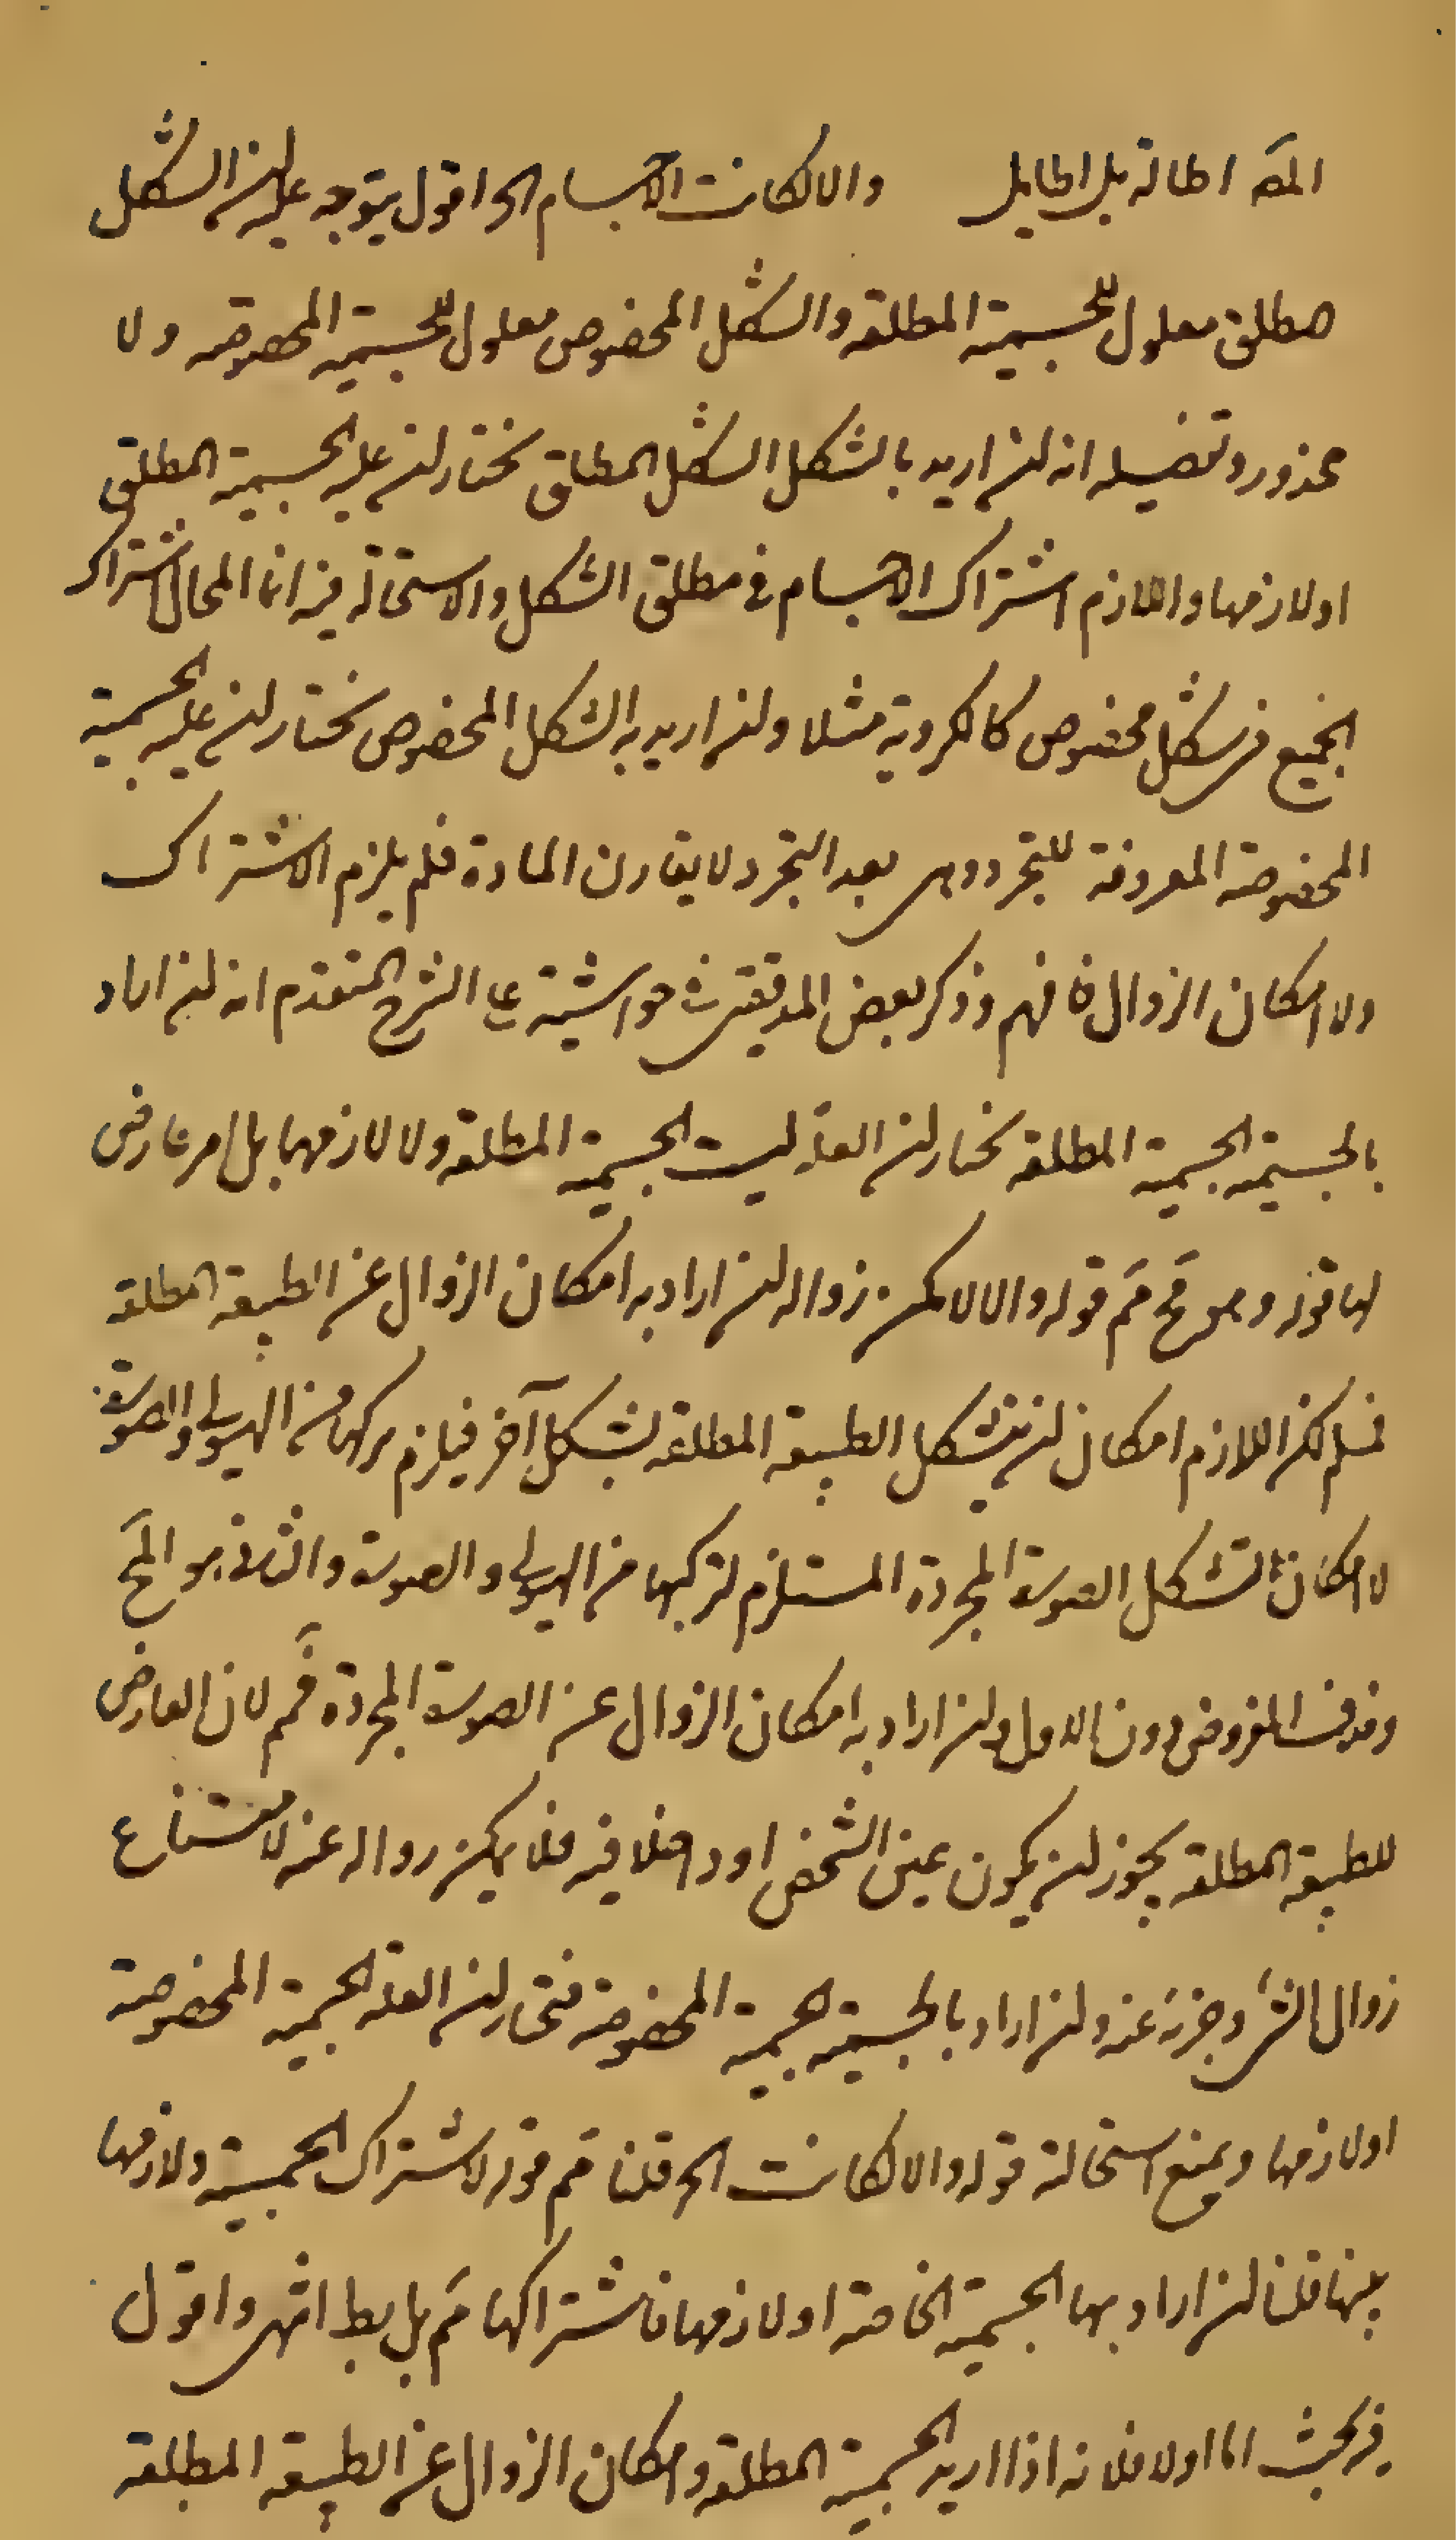 المص اطالة بلا طايل والا لكانت الاجسام الخ اقول يتوجه عليه ان الشكل
مطلق معلول للجسمية المطلقة والشكل المخصوص معلول للجسمية المخصوصة ولا
محذور وتفصيله انه ان اريد بالشكل الشكل المطلق نختار ان علته الجسمية المطلق
او لازمها واللازم اشتراك الاجسام في مطلق الشكل والاستحالة فيه انما المحال اشتراك
الجميع في شكل مخصوص كالكروية مثلا وان اريد به الشكل المخصوص نختار ان علته الجسمية
المخصوصة المعروفة للتجرد وهي بعد التجرد لا يقارن المادة فلم يلزم الاشتراك
ولا امكان الزوال فافهم وذكر بعض المدققين في حواشيه على الشرح المتقدم انه ان اراد
بالجسمية الجسمية المطلقة نختار ان العلة ليست الجسمية المطلقة ولا لازمها بل امر عارض
لها قوله وهو مح قم قوله والا لا يمكن زواله ان اراد به امكان الزوال عن الطبيعة المطلقة
فمسلم لكن اللازم امكان ان يتشكل الطبيعة المطلقة بشكل آخر فيلزم تركبها من الهيولى والصورة
لا امكان تشكل الصورة المجردة المستلزم لتركبها من الهيولى والصورة والثاني هو المح
وخلاف المفروض دون الاول وان اراد به امكان الزوال عن الصورة المجردة فمم لان العارض
للطبيعة المطلقة يجوز ان يكون عين الشخص او داخلا فيه فلا يمكن زواله عنه لامتناع
زوال الشيء وجزئه عنه وان اراد بالجسمية الجسمية المخصوصة فنختار ان العلة الجسمية المخصوصة
او لازمها ويمنع استحالة قوله والا لكانت الخ قلنا مم قوله لاشتراك الجسمية ولازمها
بينها قلنا ان اراد بها الجسمية الخاصة او لازمها فاشتراكها مم بل بط انتهى واقول
فيه بحث اما اولا فلانه اذا اريد الجسمية المطلقة وامكان الزوال عن الطبيعة المطلقة